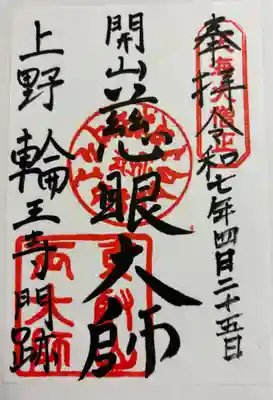 奉拝 令和七年四月二十五日
開山慈眼大師
上野 輪王寺門跡